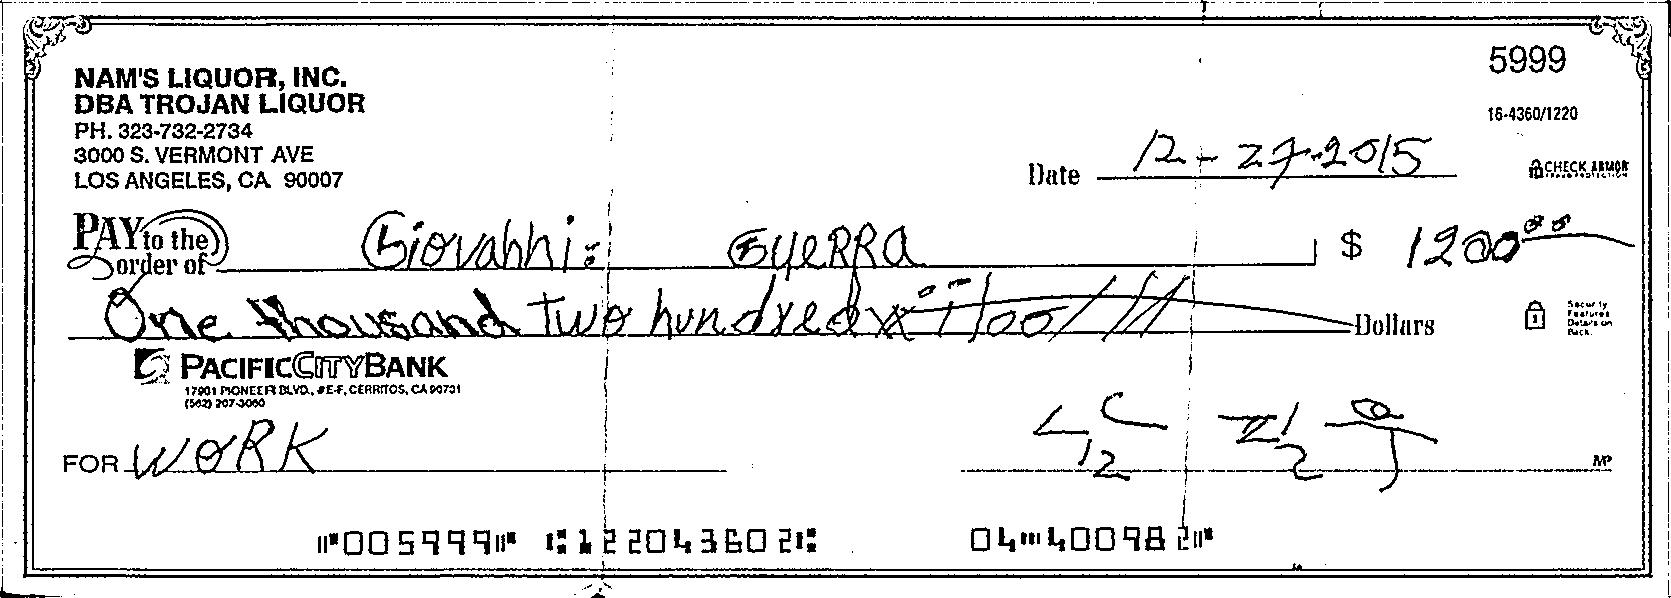 5999
NAM'S LIQUOR, INC.
DBA TROJAN LIQUOR
PH. 323-732-2734
3000 S. VERMONT AVE
LOS ANGELES, CA 90007
16-4360/1220
Date 12-27-2015
CHECK ARMOR
PAY to the order of Giovanni: Guerra $ 1200 00
One thousand two hundred /100 Dollars
Security Features Details on Back.
PACIFIC CITY BANK
17901 PIONEER BLVD., #E-F, CERRITOS, CA 90731
(562) 207-3060
FOR WORK
MP
⑈005999⑈ ⑆122043602⑆ 04⑉400982⑈